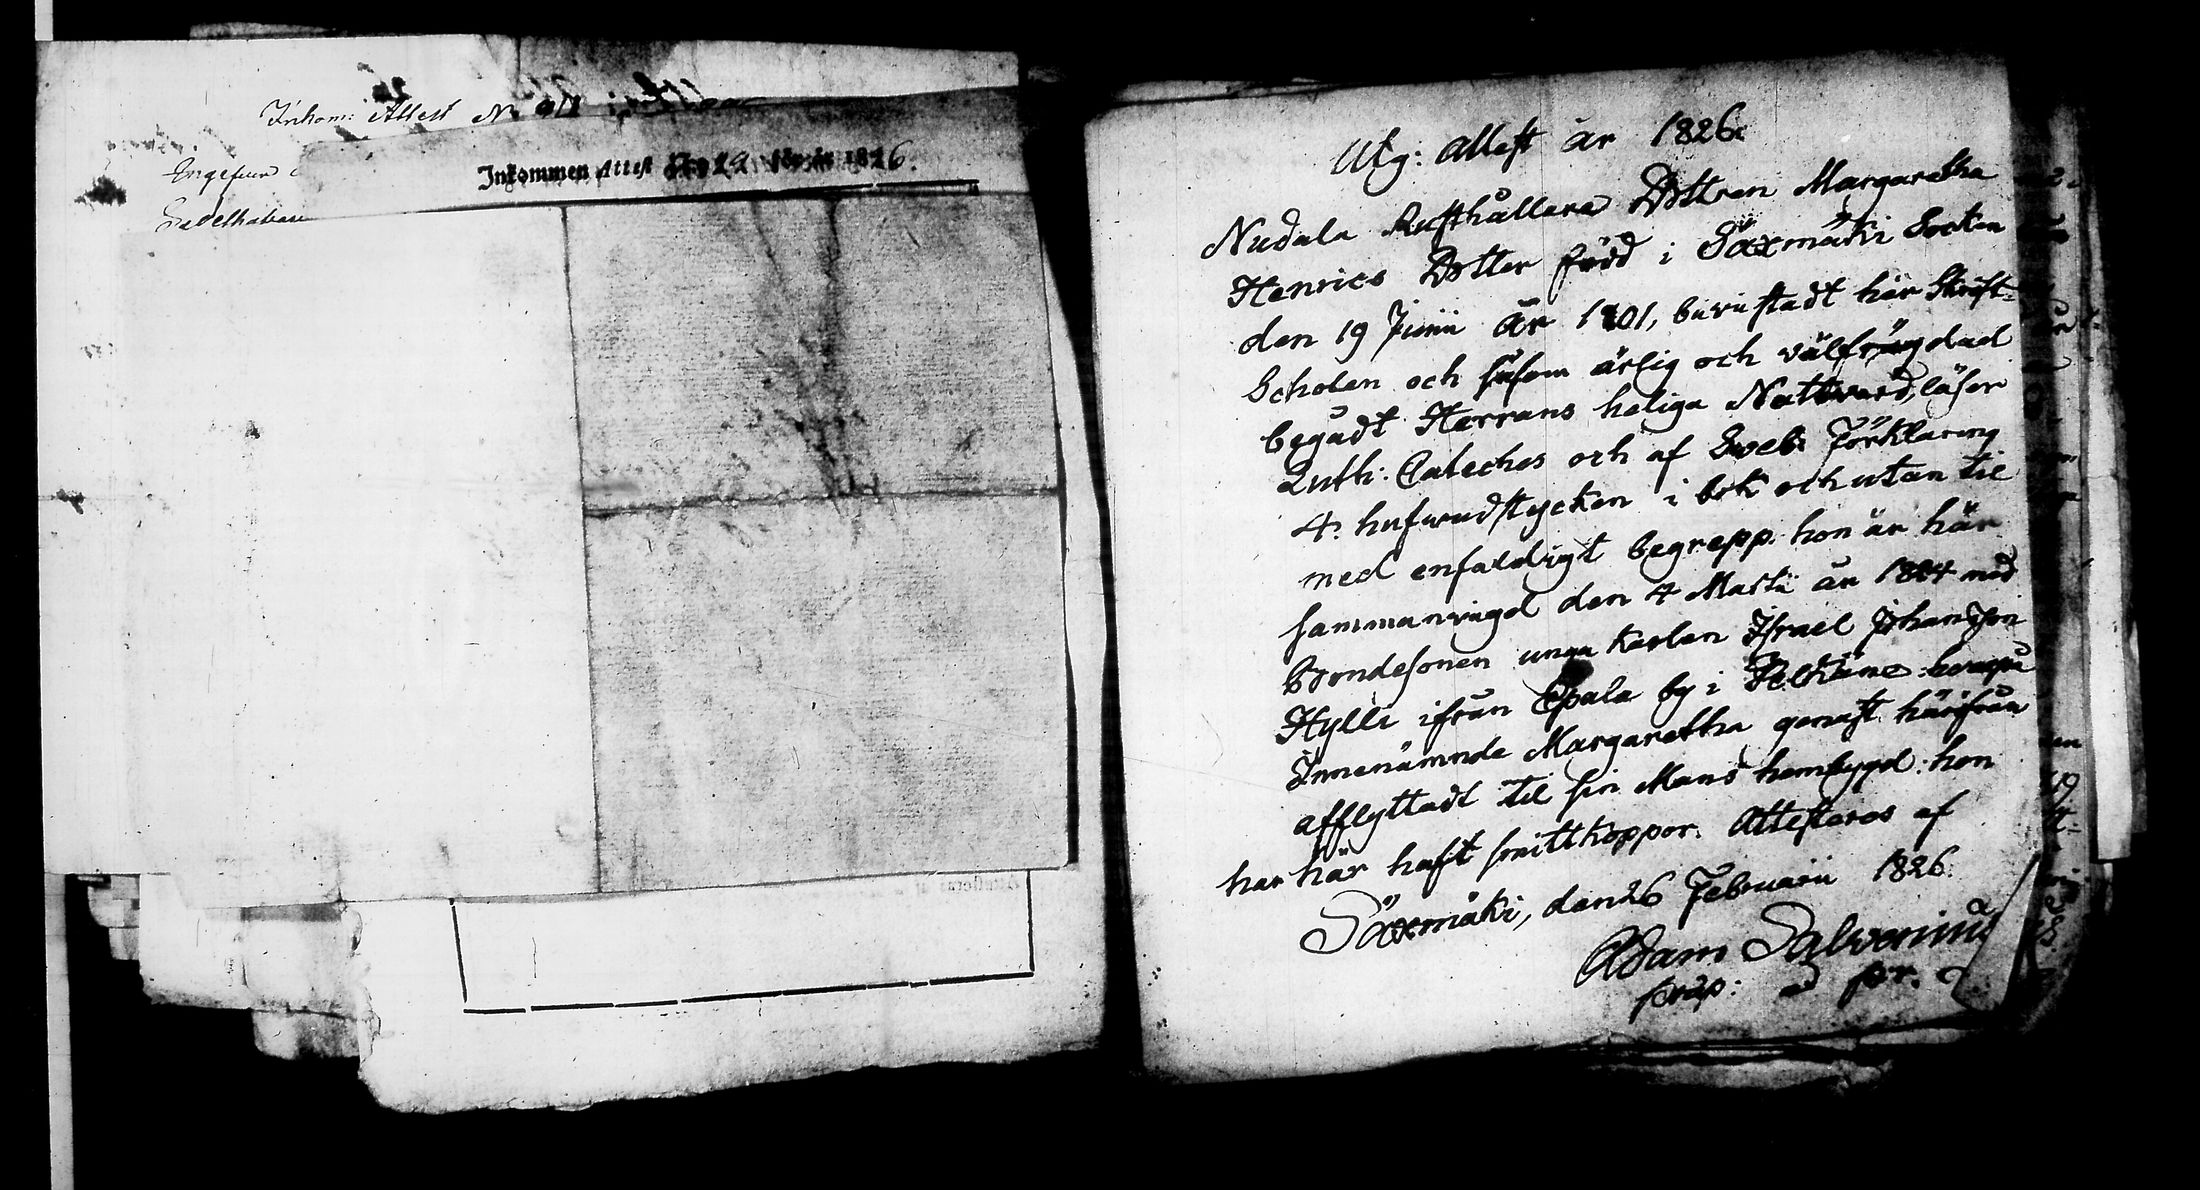 Inkom: Attest No
Engefeur
Sadelhaban
Inkommen Attest No 22 för år 1826.
Utg: Attest år 1826.
Nudala Rusthållare Dottren Margaretha
Henrics Dotter född i Sääxmäki Socken
den 19 Junii år 1801, bevistadt här Skrift-
Scholen och såsom ärlig och välfrägdad
begådt Herrans heliga Nattvard, läser
Luth: Cateches och af Sveb: Förklaring
4. hufwudstycken i bok och utan til
med enfaldigt begrepp. hon är här
sammanvigd den 4 Martii år 1824 med
Bondesonen unga Karlen Israel Johansson
Hylli ifrån Epala by i Pelkäne.
Innenämnde Margaretha genast härifrån
afflyttadt til sin Mans hembygd: hon
har här haft smittkoppor. Attesteras af
Sääxmäki, den 26 Februarii 1826.
Adam Salvenius
præp: ad pr.